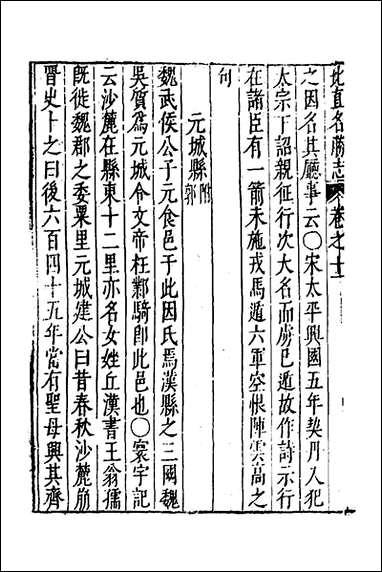 北直名勝志 卷之十二
之因名其廳事云〇宋太平興國五年契丹入犯
太宗下詔親征行次大名而虜已遁故作詩示行
在諸臣有一箭未施戎馬遁六軍空恨陣雲高之
句
元城縣附郭
魏武侯公子元食邑于此因氏焉漢縣之三國魏
吳質爲元城令文帝枉鄴騎卽此邑也〇寰宇記
云沙麓在縣東十二里亦名女姓丘漢書王翁孺
旣徙魏郡之委粟里元城建公曰昔春秋沙麓崩
晉史卜之曰後六百四十五年當有聖母興其齊